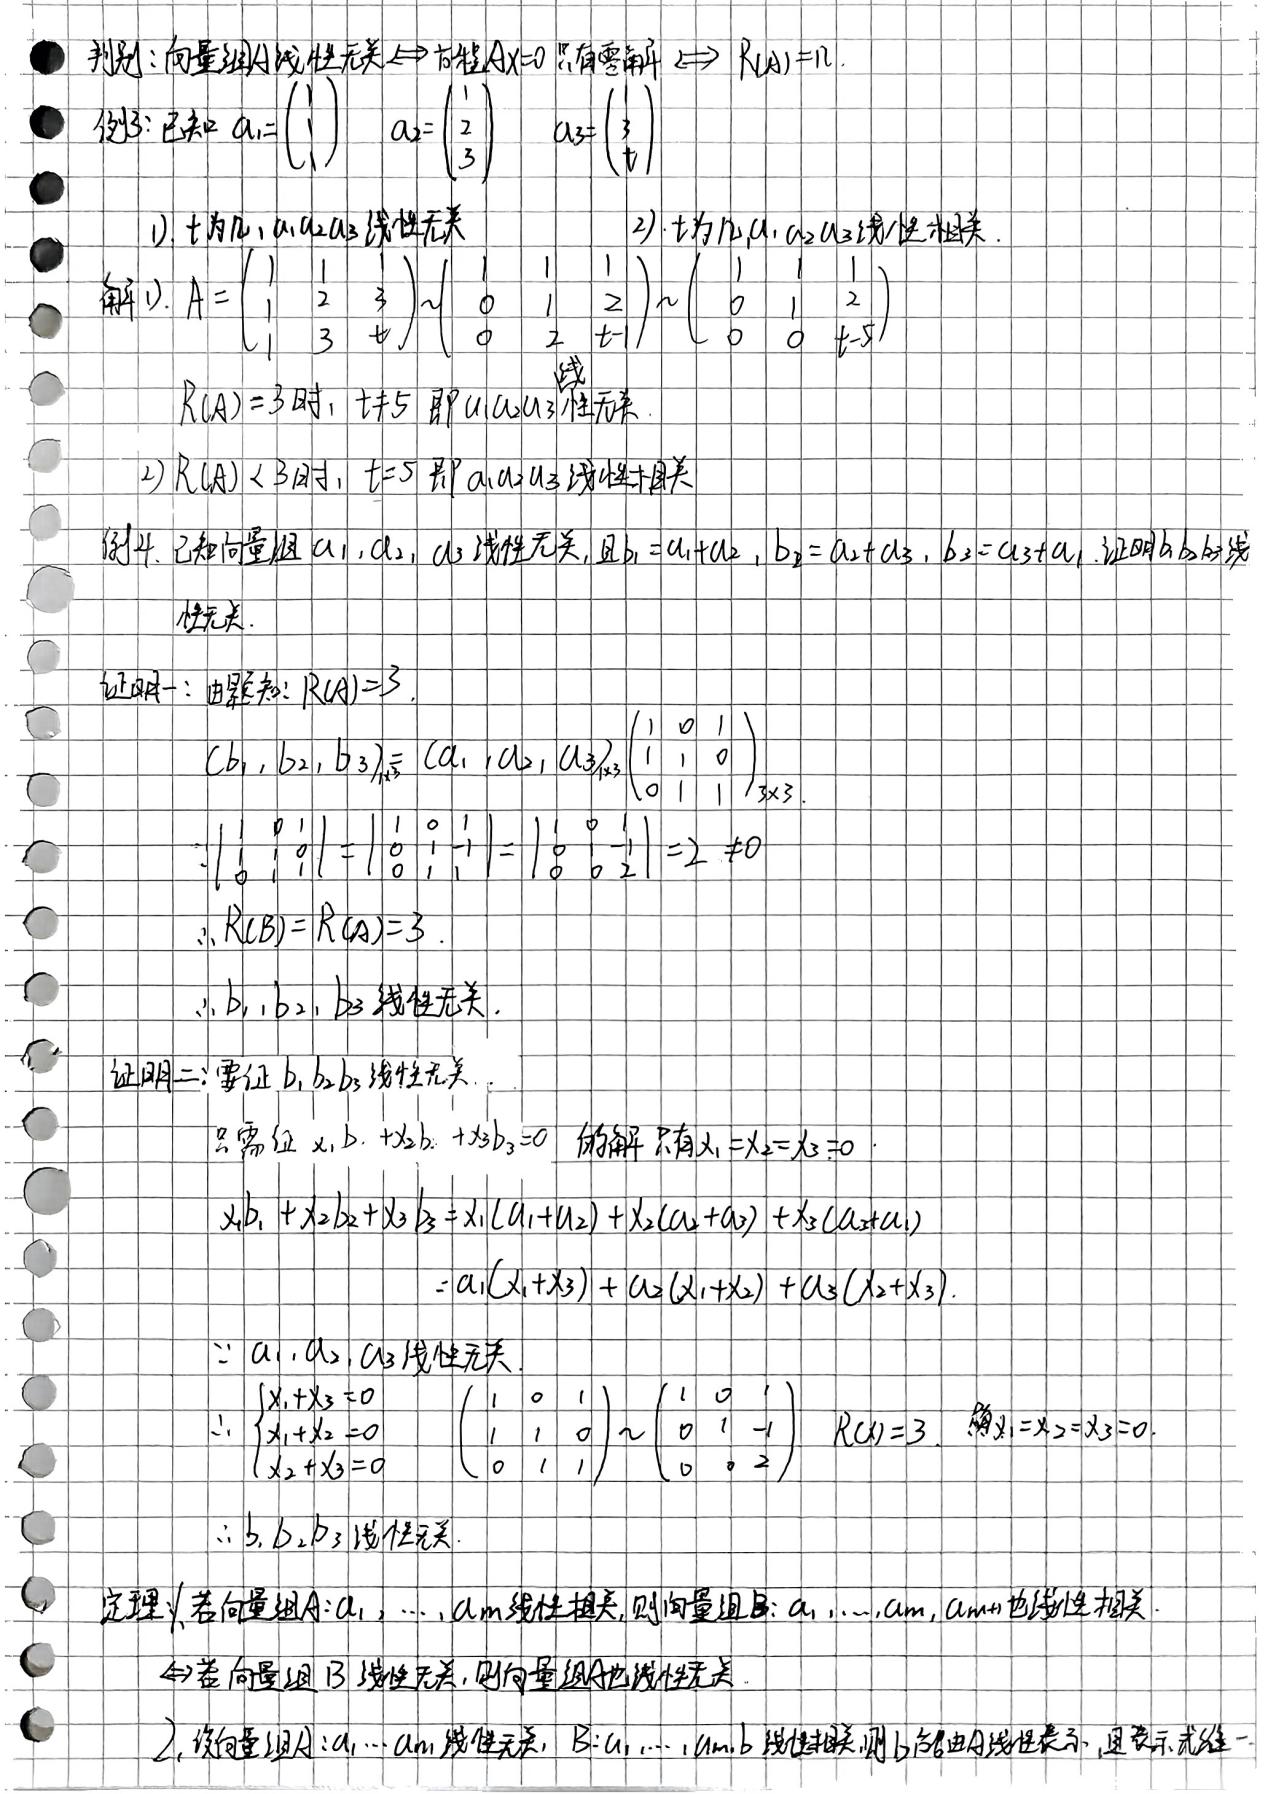 判别：向量组A线性无关 ⇔ 方程Ax=0 只有零解 ⇔ R(A)=n.
例3：已知 a₁=(1 1 1) a₂=(1 2 3) a₃=(1 3 t)
1). t为几，a₁a₂a₃线性无关 2). t为几，a₁a₂a₃线性相关.
解 1). A=(1 1 1; 1 2 3; 1 3 t) ~ (1 1 1; 0 1 2; 0 2 t-1) ~ (1 1 1; 0 1 2; 0 0 t-5)
R(A)=3时，t≠5 即a₁a₂a₃线性无关.
2) R(A)<3时，t=5 即a₁a₂a₃线性相关
例4. 已知向量组a₁，a₂，a₃线性无关，且b₁=a₁+a₂，b₂=a₂+a₃，b₃=a₃+a₁. 证明b₁b₂b₃线
性无关.
证明一：由题知：R(A)=3.
(b₁，b₂，b₃)₁ₓ₃=(a₁，a₂，a₃)₁ₓ₃(1 0 1; 1 1 0; 0 1 1)₃ₓ₃.
∵|1 0 1; 1 1 0; 0 1 1|=|1 0 1; 0 1 -1; 0 1 1|=|1 0 1; 0 1 -1; 0 0 2|=2≠0
∴R(B)=R(A)=3.
∴b₁，b₂，b₃线性无关.
证明二：要证b₁b₂b₃线性无关.
只需证 x₁b₁+x₂b₂+x₃b₃=0 的解只有x₁=x₂=x₃=0.
x₁b₁+x₂b₂+x₃b₃=x₁(a₁+a₂)+x₂(a₂+a₃)+x₃(a₃+a₁)
=a₁(x₁+x₃)+a₂(x₁+x₂)+a₃(x₂+x₃).
∵ a₁，a₂，a₃线性无关.
∴ {x₁+x₃=0 x₁+x₂=0 x₂+x₃=0 (1 0 1; 1 1 0; 0 1 1) ~ (1 0 1; 0 1 -1; 0 0 2) R(A)=3. x₁=x₂=x₃=0.
∴b₁b₂b₃线性无关.
定理：1. 若向量组A：a₁，…，am线性相关，则向量组B：a₁，…，am，am+1也线性相关.
⇔若向量组B线性无关，则向量组A也线性无关.
2. 设向量组A：a₁…am线性无关，B：a₁，…，am，b线性相关，则b能由A线性表示，且表示式唯一